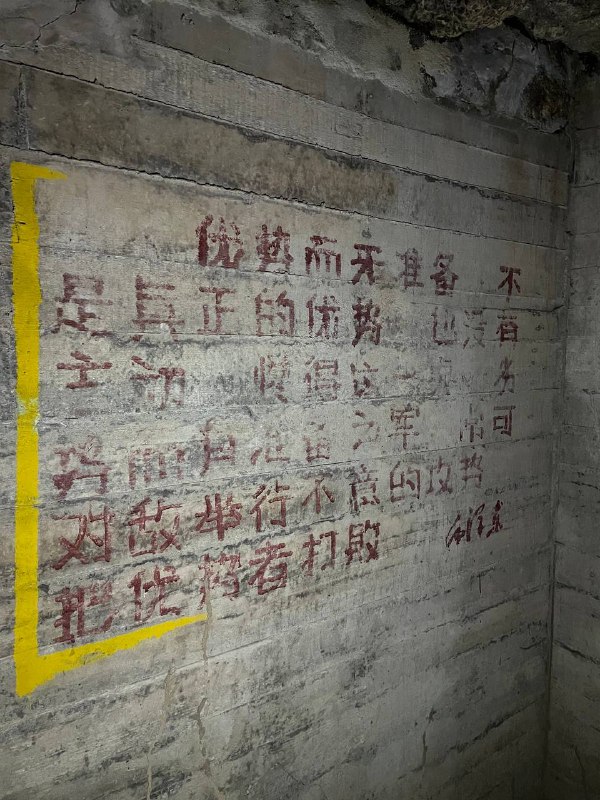 优势而无准备 不
是真正的优势 也没有
主动 懂得这一点 劣
势而有准备之军 常可
对敌举行不意的攻势
把优势者打败
毛泽东